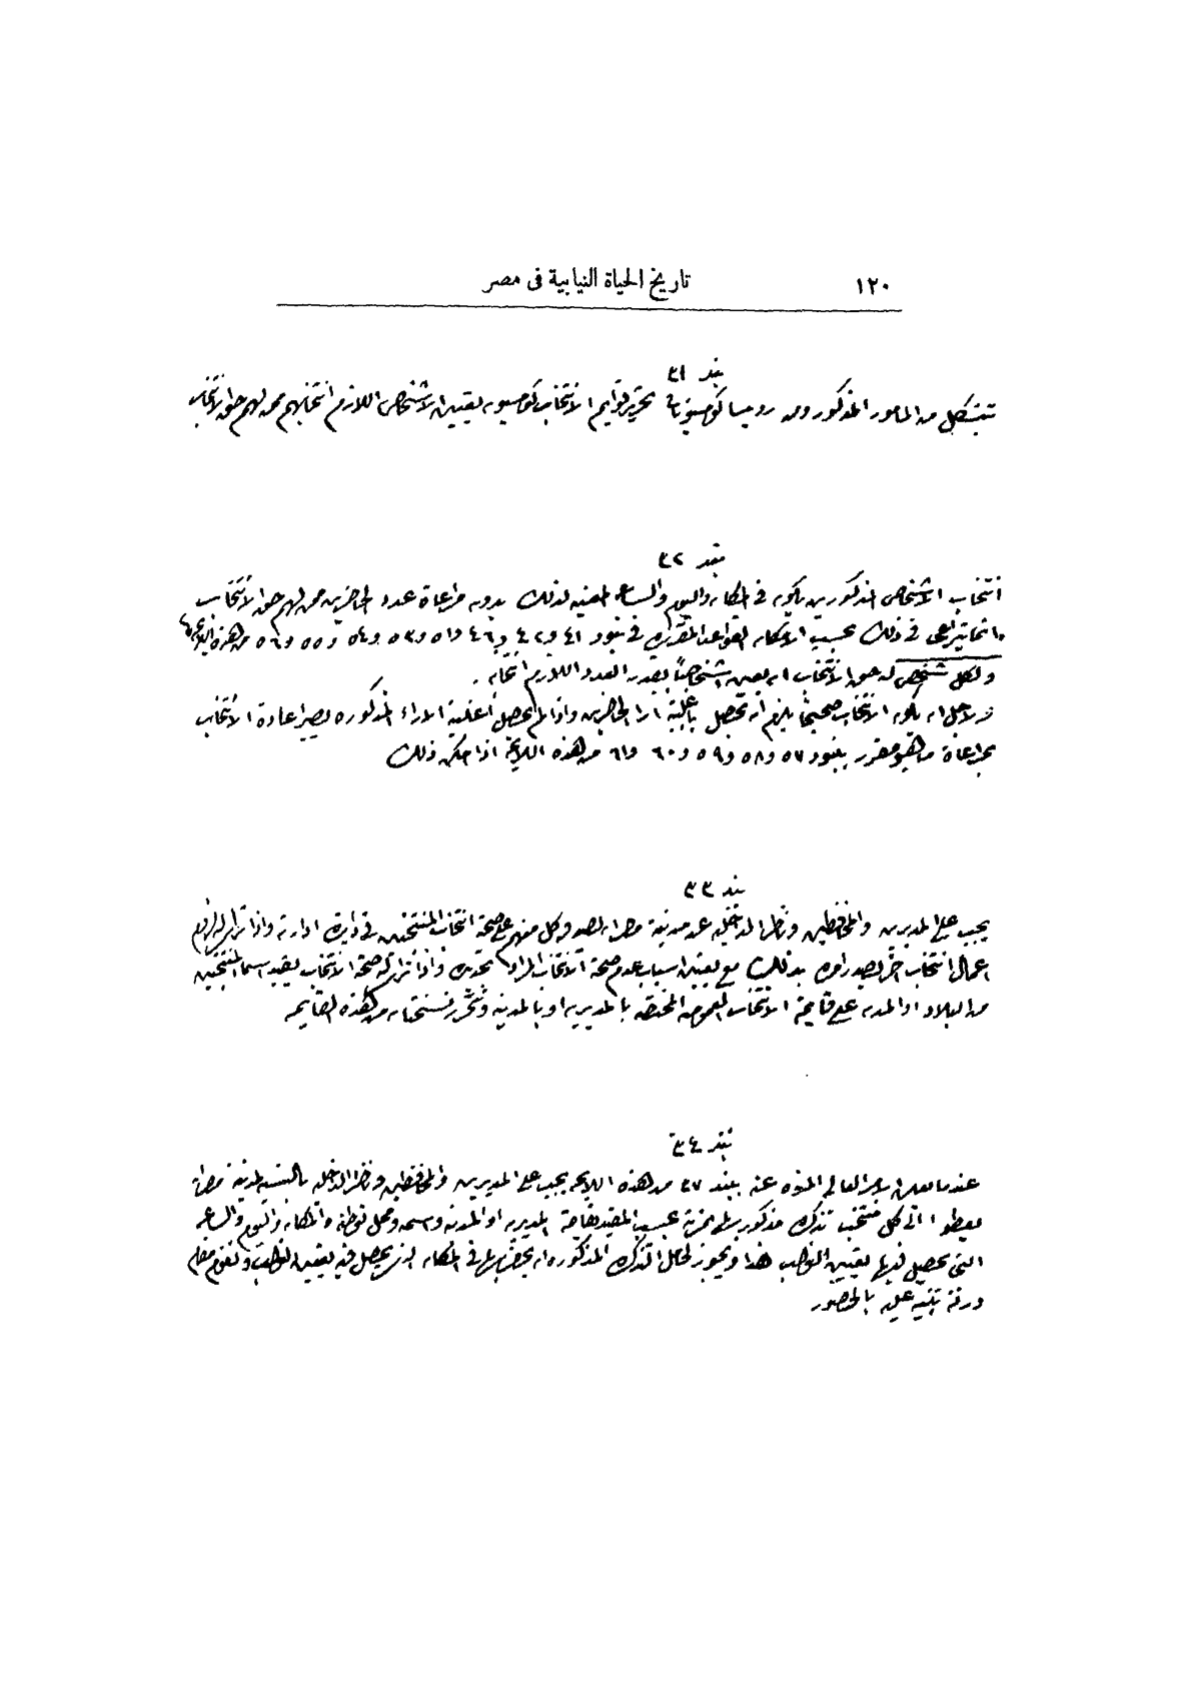 ١٢٠
تاريخ الحياة النيابية فى مصر
بند ٣١
تتشكل من المامور المذكور ومن روسا كوميسيونات تحرير قوايم الانتخاب كوميسيون لتعيين الاشخاص اللازم انتخابهم ممن لهم حق الانتخاب
بند ٣٢
انتخاب الاشخاص المذكورين يكون فى المكان واليوم والساعه المعينه لذلك بدون مراعاة عدد الحاضرين ممن لهم حق الانتخاب
انما تراعى فى ذلك بحسب الامكان القواعد المقرره فى بنود ٤١ و٤٢ و٤٦ و٥١ و٥٣ و٥٤ و٥٥ و٥٦ من هذه اللايحه
ولكل شخص له حق الانتخاب ان يعين اشخاصاً بقدر العدد اللازم انتخابه .
ولاجل ان يكون الانتخاب صحيحاً يلزم انه يحصل باغلبية ارا الحاضرين واذا لم تحصل أغلبية الاراء المذكوره يصير اعادة الانتخاب
بمراعاة ما هو مقرر ببنود ٥٧ و٥٨ و٥٩ و٦٠ و٦١ من هذه اللايحة اذا امكن ذلك
بند ٣٣
يجب على المديرين والمحافظين وناظر الداخليه عن مدينة مصر ان يصدق كل منهم على صحة انتخاب المنتخبين فى دايرة ادارته واذا تراأى له لزوم
اعمال انتخاب آخر يصدر امره بذلك مع تعيين اسباب عدم صحة الانتخاب المراد تجديده واذا تراأى له صحة الانتخاب يقيد اسما المنتخبين
من البلاد او المدن على قايمة الانتخاب العموميه المختصه بالمديريه او بالمدينه وتُحَرَّر نسختان من هذه القايمه
بند ٣٤
عندما يعلن الامر العالى المنوه عنه ببند ٢٧ من هذه اللايحه يجب على المديرين والمحافظين وناظر الداخليه بالنسبه لمدينة مصر ان
يعطوا الى كل منتخب تذكره مذكور بها نمرته بحسب المقيد بقايمة المديريه او المدينه واسمه ومحل توطنه والمكان واليوم والساعه
التى يحصل فيها تعيين النواب هذا ويجوز لحامل التذكره المذكوره ان يحضر بها فى المكان الذى يحصل فيه تعيين النواب وتقوم مقام
ورقة تنبيه عليه بالحضور